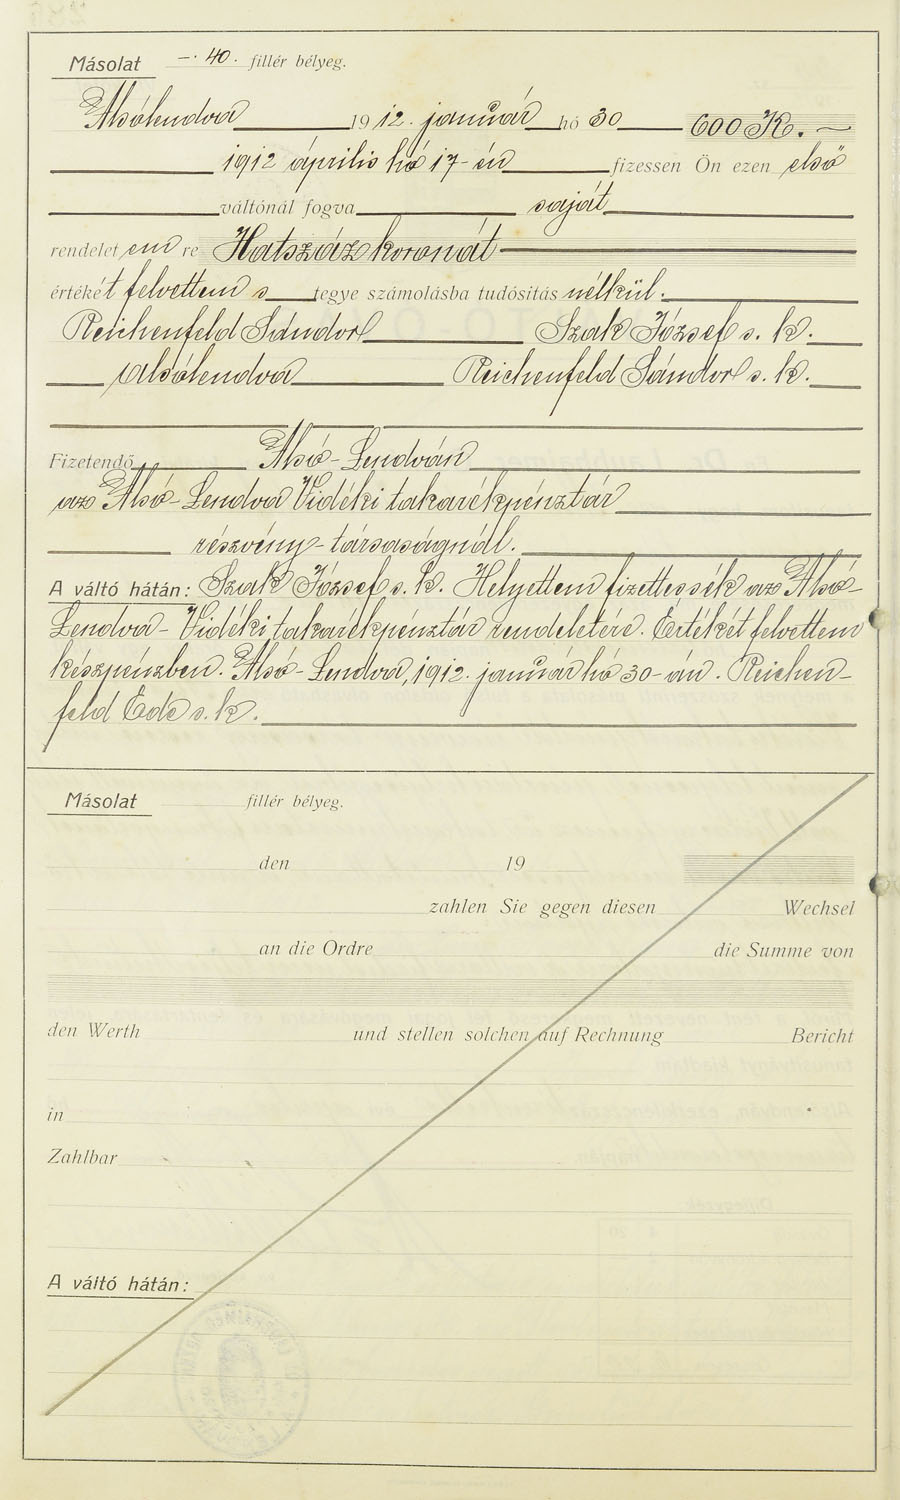 Másolat —. 40. fillér bélyeg.
Alsólendva 1912. január hó 30 600 K. —
1912 április hó 17-én fizessen Ön ezen első
váltónál fogva saját
rendeletem re Hatszáz koronát
értékét felvettem s tegye számolásba tudósítás nélkül.
Reichenfeld Sándor Szak József s. k.
Alsólendva Reichenfeld Sándor s. k.
Fizetendő Alsó-Lendván
az Alsó-Lendva Vidéki takarékpénztár
részvény-társaságnál.
A váltó hátán: Szak József s. k. Helyettem fizettessék az Alsó-
Lendva-Vidéki takarékpénztár rendeletére. Értékét felvettem
készpénzben. Alsó-Lendva, 1912. január hó 30-án. Reichen-
feld Ede s. k.
Másolat fillér bélyeg.
den 19
zahlen Sie gegen diesen Wechsel
an die Ordre die Summe von
den Werth und stellen solchen auf Rechnung Bericht
in
Zahlbar
A váltó hátán: